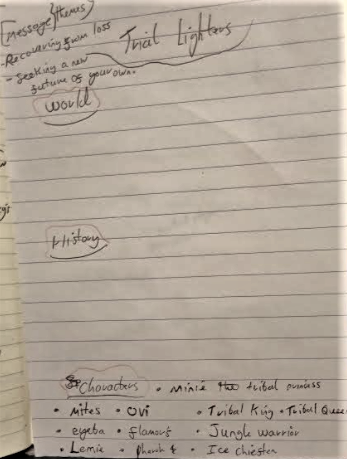 [message/themes]
-Recovering from loss
-Seeking a new
future of your own.
Trial Lighters
World
History
Characters • Minie tribal princess
• Mites • Ovi • Tribal King • Tribal Queen
• flamous • Jungle warrior
• Lemie • Ice chiestan